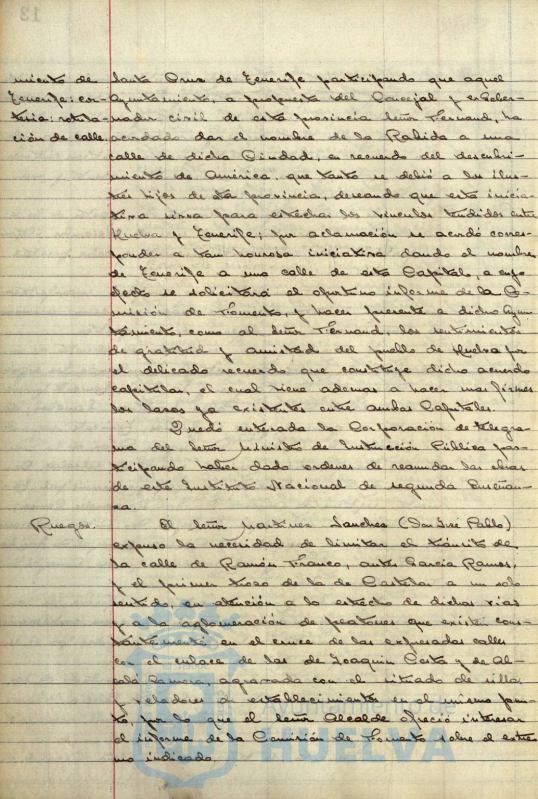 miento de Santa Cruz de Tenerife participando que aquel
Tenerife: cor- Ayuntamiento, a propuesta del Concejal y ex Gober-
tesia: rotula- nador civil de esta provincia Señor Fernaud, ha
ción de calle. acordado dar el nombre de la Rabida a una
calle de dicha Ciudad, en recuerdo del descubri-
miento de América, que tanto se debió a los ilus-
tres hijos de esta provincia, deseando que esta inicia-
tiva sirva para estrechar los vinculos tendidos entre
Huelva y Tenerife; por aclamación se acordó corres-
ponder a tan honrosa iniciativa dando el nombre
de Tenerife a una calle de esta Capital, a cuyo
efecto se solicitará el oportuno informe de la Co-
misión de Fomento, y hacer presente a dicho Ayun-
tamiento, como al Señor Fernaud, los sentimientos
de gratitud y amistad del pueblo de Huelva por
el delicado recuerdo que constituye dicho acuerdo
capitular, el cual viene ademas a hacer mas firmes
los lazos ya existentes entre ambas Capitales.
Quedó enterada la Corporación de telegra-
ma del Señor Ministro de Instrucción Pública par-
ticipando haber dado ordenes de reanudar las obras
de este Instituto Nacional de segunda Enseñan-
za.
Ruegos. El Señor Martinez Sanchez (Don José Pablo)
expuso la necesidad de limitar el tránsito de
la calle de Ramón Franco, antes Garcia Ramos,
y el primer trozo de la de Castelar a un solo
sentido, en atención a lo estrecho de dichas vias
y a la aglomeración de peatones que existe cons-
tantemente en el cruce de las expresadas calles
con el enlace de las de Joaquin Costa y de Al-
calá Zamora, agravada con el situado de sillas
y veladores de establecimientos en el mismo pun-
to, por lo que el Señor Alcalde ofreció interesar
el informe de la Comisión de Fomento sobre el extre-
mo indicado.
Ayuntamiento de
HUELVA